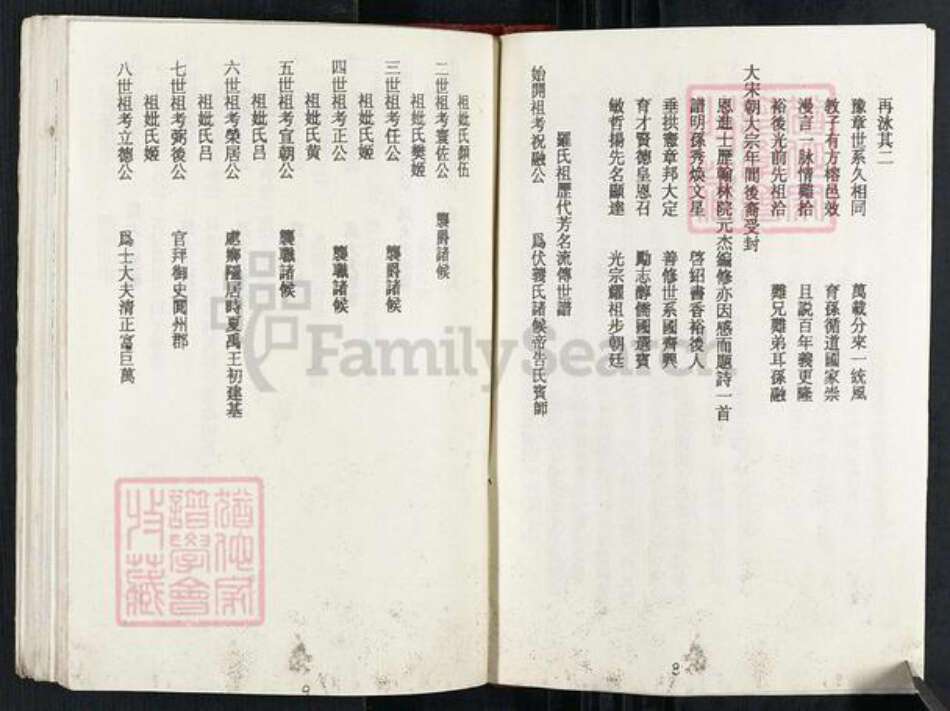 再泳其二
豫章世系久相同　萬載分來一統風
教子有方榕邑效　育孫循道國家崇
漫言一脉情難拾　且説百年義更隆
裕後光前先祖洽　難兄難弟耳孫融
大宋朝大宗年間後裔受封
恩進士歷翰林院元杰編修亦因感而題詩一首
譜明孫秀煥文星　啓紹書香裕後人
垂拱憲章邦大定　善修世系國齊興
育才賢德皇恩召　勵志醇儒國選賓
敏哲揚先名顯達　光宗耀祖步朝廷
羅氏祖歷代芳名流傳世譜
始開祖考祝融公　爲伏羲氏諸候帝告氏賓師
8
祖妣氏顏伍
二世祖考蹇佐公　襲爵諸候
祖妣氏樊姬
三世祖考任公　襲爵諸候
祖妣氏姬
四世祖考正公　襲職諸候
祖妣氏黄
五世祖考宣朝公　襲職諸候
祖妣氏吕
六世祖考榮居公　處鄉隱居時夏禹王初建基
祖妣氏吕
七世祖考弼後公　官拜御史閬州郡
祖妣氏姬
八世祖考立德公　爲士大夫清正富巨萬
9
猶他家譜學會收藏
FamilySearch